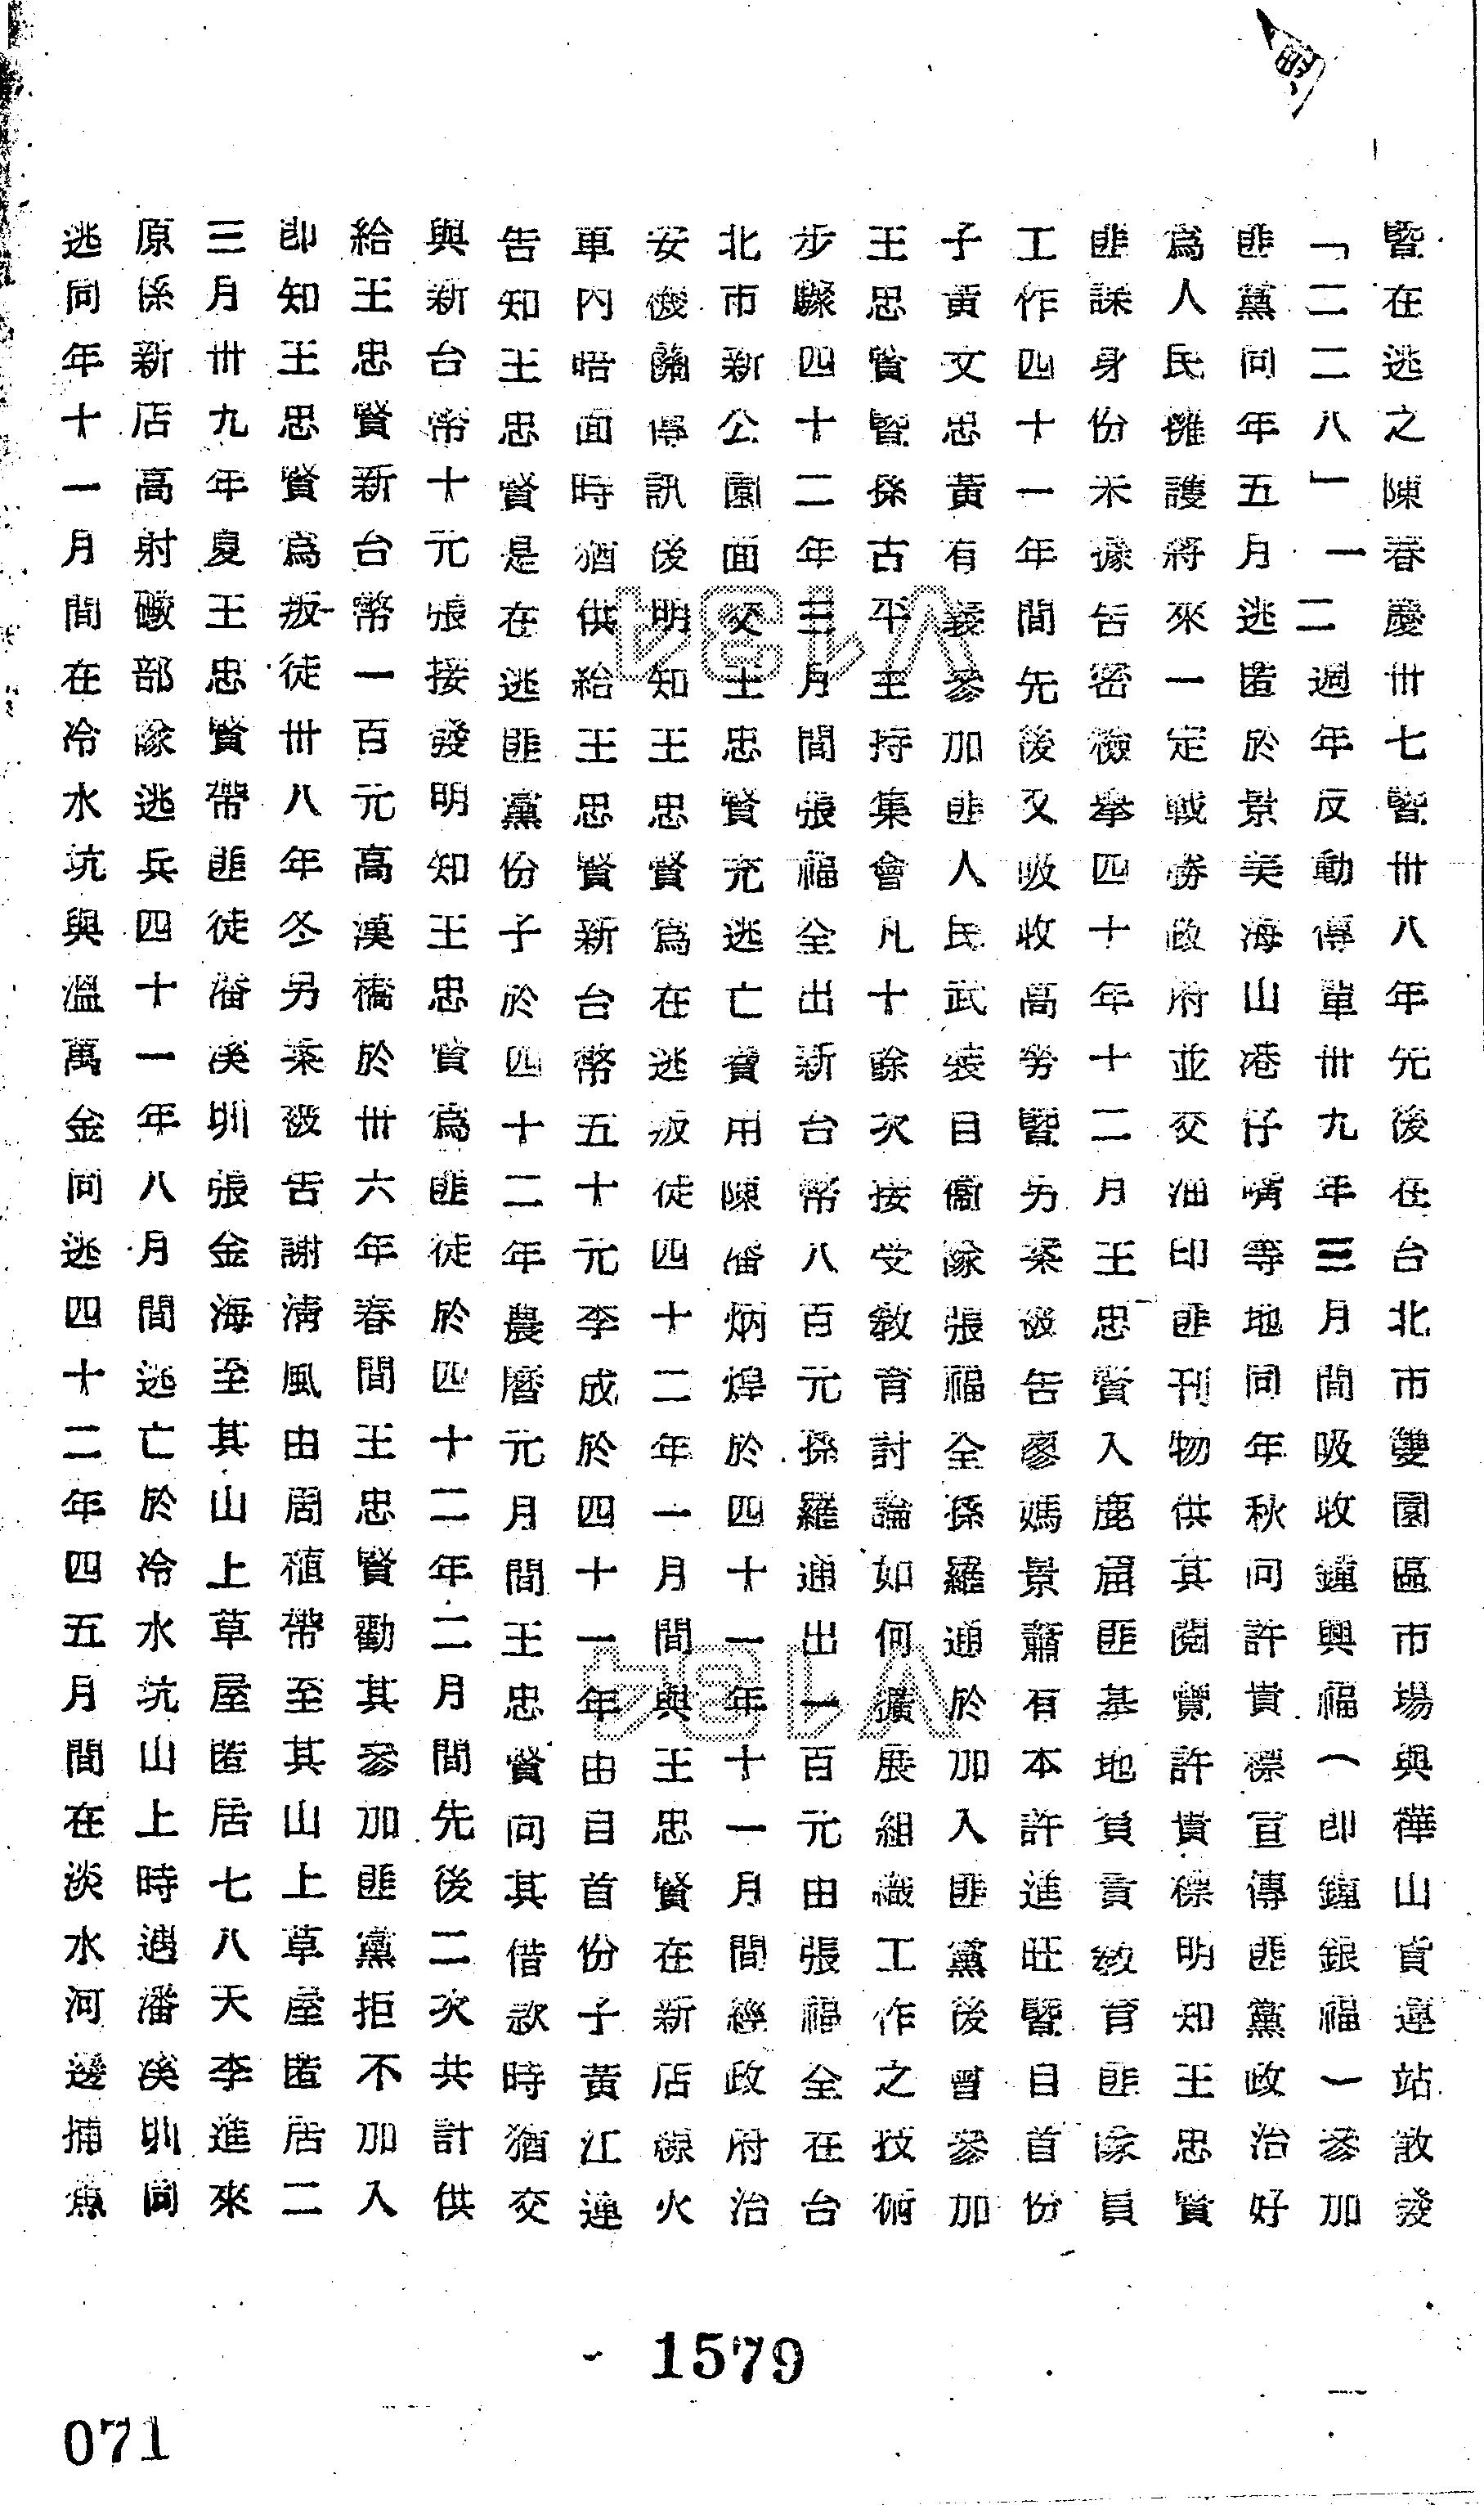 暨在逃之陳春慶卅七暨卅八年先後在台北市雙園區市場與樺山貨運站散發
「二二八」一二週年反動傳單卅九年三月間吸收鐘興福（即鐘銀福一參加
匪黨同年五月逃匿於景美海山港仔嘴等地同年秋向許貴標宣傳匪黨政治好
為人民擁護將來一定戰勝政府並交油印匪刊物供其閱覽許貴標明知王忠賢
匪諜身份未據告密檢舉四十年十二月王忠賢入鹿窟匪基地負責教育匪隊員
工作四十一年間先後又吸收高勞暨另案被告廖媽景蕭有本許進旺暨自首份
子黃文忠黃有義參加匪人民武裝自衛隊張福全孫羅通於加入匪黨後曾參加
王忠賢暨孫古平主持集會凡十餘次接受教育討論如何擴展組織工作之技術
步驟四十二年三月間張福全出新台幣八百元孫羅通出一百元由張福全在台
北市新公園面交王忠賢充逃亡費用陳潘炳煌於四十一年十一月間經政府治
安機關傳訊後明知王忠賢為在逃叛徒四十二年一月間與王忠賢在新店線火
車內晤面時猶供給王忠賢新台幣五十元李成於四十一年由自首份子黃江連
告知王忠賢是在逃匪黨份子於四十二年農曆元月間王忠賢向其借款時猶交
與新台幣十元張接發明知王忠賢為匪徒於四十二年二月間先後二次共計供
給王忠賢新台幣一百元高漢橋於卅六年春間王忠賢勸其參加匪黨拒不加入
即知王忠賢為叛徒卅八年冬另案被告謝清風由周植帶至其山上草屋匿居二
三月卅九年夏王忠賢帶匪徒潘溪圳張金海至其山上草屋匿居七八天李進來
原係新店高射礮部隊逃兵四十一年八月間逃亡於冷水坑山上時遇潘溪圳同
逃同年十一月間在冷水坑與溫萬金同逃四十二年四五月間在淡水河邊捕魚
1579
071